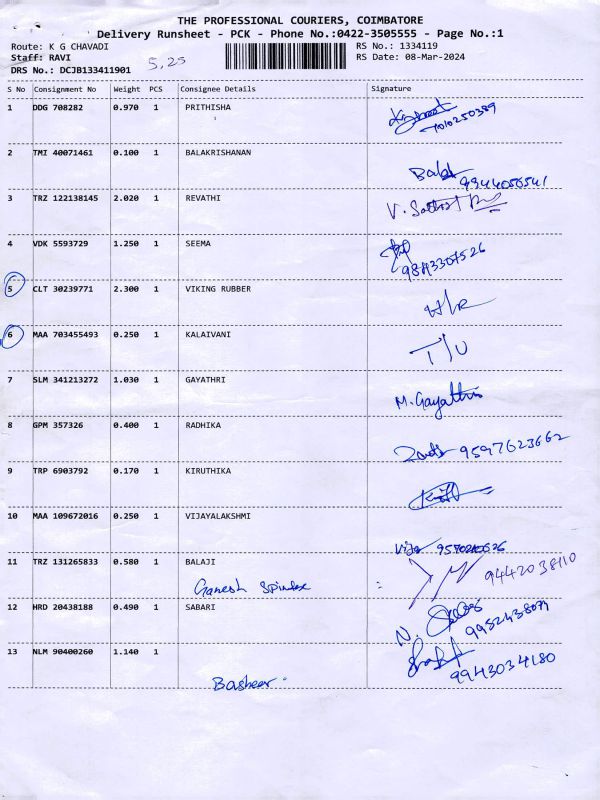 THE PROFESSIONAL COURIERS, COIMBATORE
Delivery Runsheet - PCK - Phone No.:0422-3505555 - Page No.:1
Route: K G CHAVADI RS No.: 1334119
Staff: RAVI RS Date: 08-Mar-2024
DRS No.: DCJB133411901 5,25
S No Consignment No Weight PCS Consignee Details Signature
1 DDG 708282 0.970 1 PRITHISHA
7010250389
2 TMI 40071461 0.100 1 BALAKRISHANAN
3 TRZ 122138145 2.020 1 REVATHI
4 VDK 5593729 1.250 1 SEEMA
9843307526
5 CLT 30239771 2.300 1 VIKING RUBBER
6 MAA 703455493 0.250 1 KALAIVANI
T/U
7 SLM 341213272 1.030 1 GAYATHRI
M. Gayathri
8 GPM 357326 0.400 1 RADHIKA
9597623662
9 TRP 6903792 0.170 1 KIRUTHIKA
10 MAA 109672016 0.250 1 VIJAYALAKSHMI
Vija
11 TRZ 131265833 0.580 1 BALAJI
Ganesh 9442038110
12 HRD 20438188 0.490 1 SABARI
N. 9952438079
13 NLM 90400260 1.140 1
9943034180
Basheer